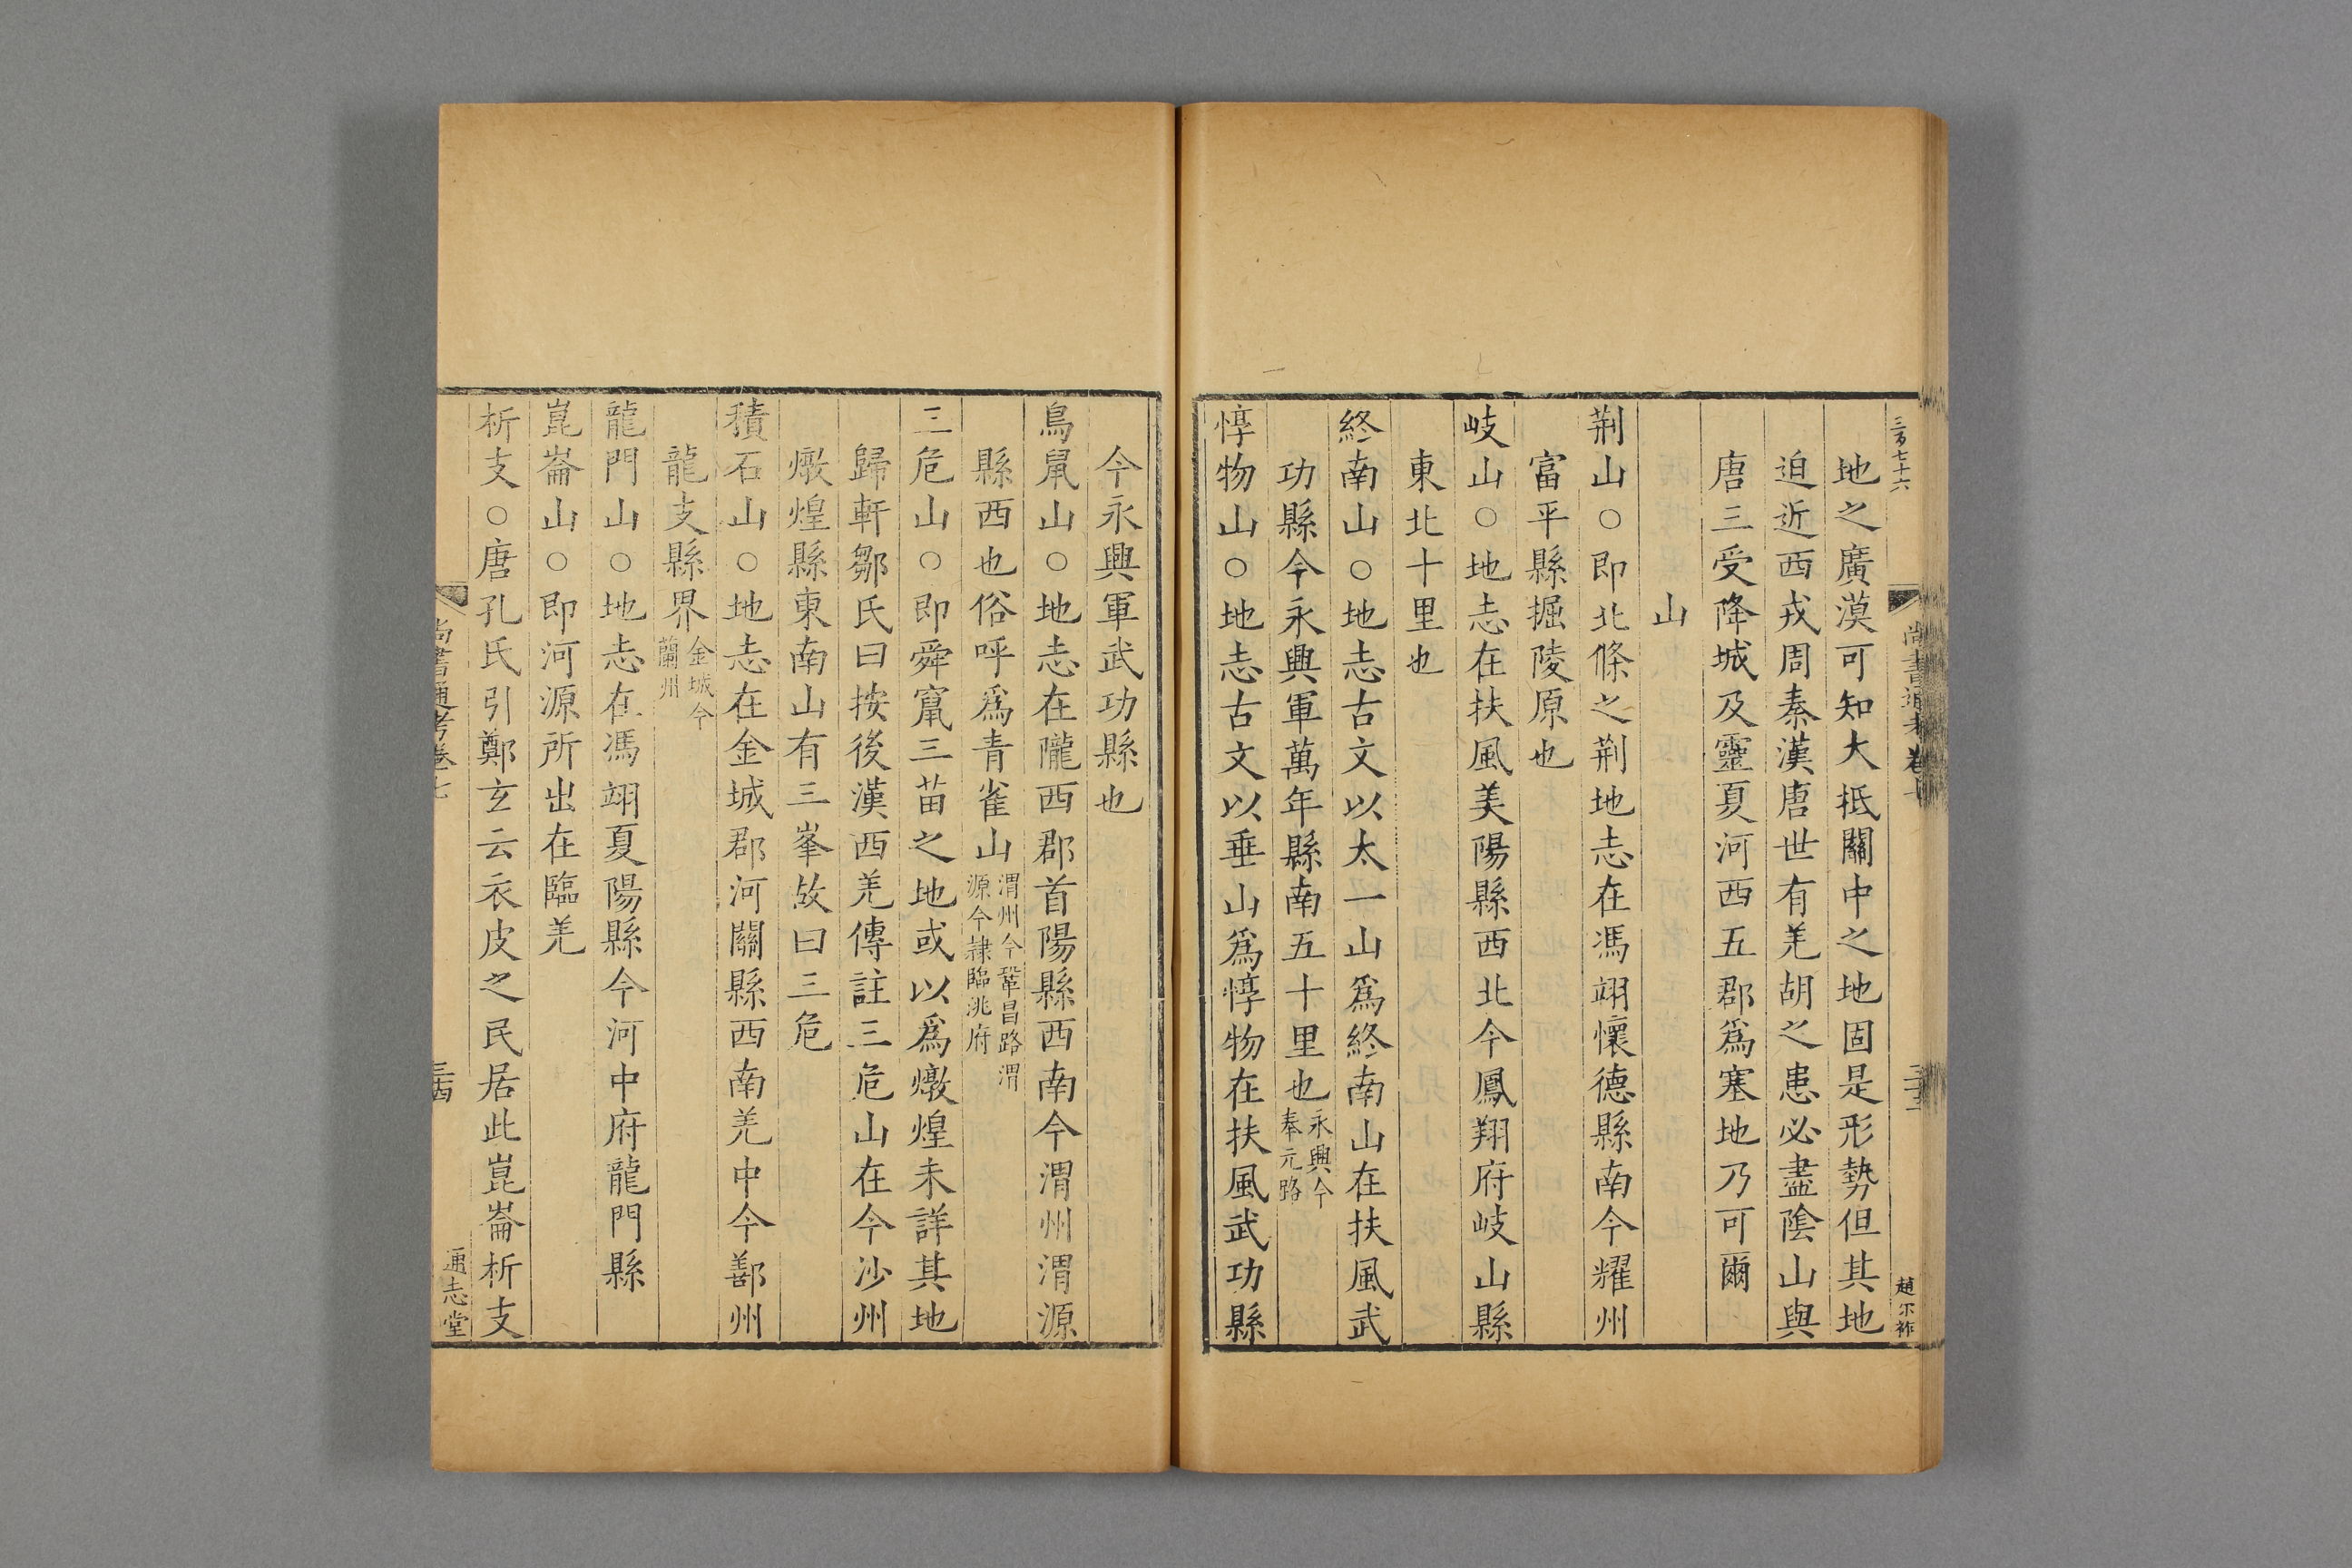 三百七十六
尚書通考卷七
趙尔祚
地之廣漠可知大抵關中之地固是形勢但其地
迫近西戎周秦漢唐世有羌胡之患必盡陰山與
唐三受降城及靈夏河西五郡爲塞地乃可爾
山
荆山○即北條之荆地志在馮翊懷德縣南今耀州
富平縣掘陵原也
岐山○地志在扶風美陽縣西北今鳳翔府岐山縣
東北十里也
終南山○地志古文以太一山爲終南山在扶風武
功縣今永興軍萬年縣南五十里也永興今奉元路
惇物山○地志古文以垂山爲惇物在扶風武功縣
今永興軍武功縣也
鳥鼠山○地志在隴西郡首陽縣西南今渭州渭源
縣西也俗呼爲青雀山渭州今鞏昌路渭源今隸臨洮府
三危山○即舜竄三苗之地或以爲燉煌未詳其地
歸軒鄒氏曰按後漢西羌傳註三危山在今沙州
燉煌縣東南山有三峯故曰三危
積石山○地志在金城郡河關縣西南羌中今鄯州
龍支縣界金城今蘭州
龍門山○地志在馮翊夏陽縣今河中府龍門縣
崑崙山○即河源所出在臨羌
析支○唐孔氏引鄭玄云衣皮之民居此崑崙析支
尚書通考卷七
三十四
通志堂